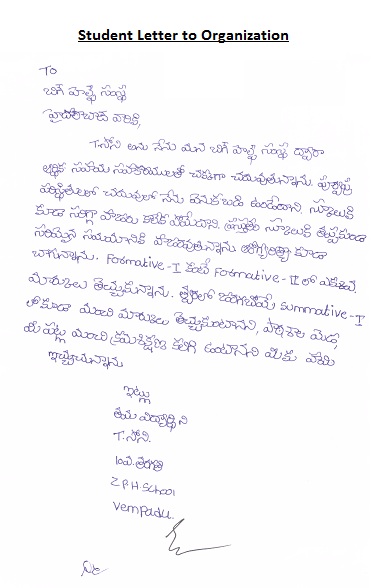 Student Letter to Organization
To
బిగ్ హెల్ప్ సంస్థ
హైదరాబాద్ వారికి,
T.సోని అను నేను మన బిగ్ హెల్ప్ సంస్థ ద్వారా
ఆర్థిక సహాయ సహకారములతో చక్కగా చదువుతున్నాను. పూర్వపు
పరిస్థితులలో చదువులో నేను వెనుకబడి ఉండేదాని. స్కూలుకి
కూడా సరిగ్గా హాజరు కాలేక పోయేదాని. ఇప్పుడు స్కూలుకి తప్పకుండా
సరియైన సమయానికి హాజరవుతున్నాను ఆరోగ్యంగా కూడా
బాగున్నాను. Formative-I కంటే Formative-II లో ఎక్కువ
మార్కులు తెచ్చుకున్నాను. త్వరలో జరగబోయే summative-I
లోకూడా మంచి మార్కులు తెచ్చుకుంటానని, పాఠశాల మెడ్ల,
మీ పట్ల మంచి క్రమశిక్షణ కలిగి ఉంటానని మీకు హామీ
ఇచ్చుచున్నాను
ఇట్లు
తమ విద్యార్థిని
T.సోని.
10వ.తరగతి
Z.P.H.School
Vempadu.